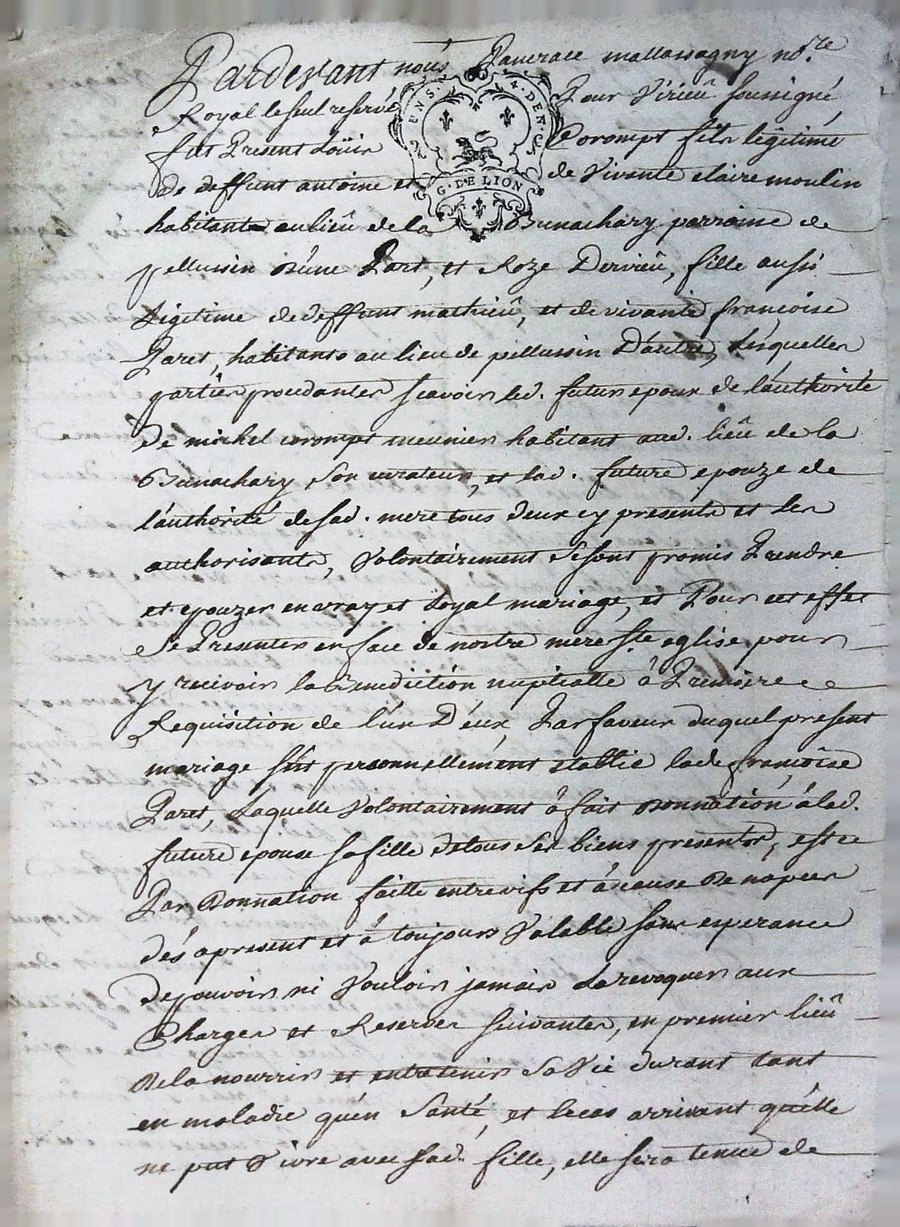 Pardevant nous Pancrace mallassagny no.re
Royal le seul reservé Pour Virieû soussigné
GEN S. 4. DEN.
fut Present Loüis Corompt fils légitime
de deffunt antoine et de Vivante claire moulin
G. DE LION
habitants au lieû de la Bunachary parroisse de
pellussin d'une Part, et Roze Dervieû, fille aussi
Légitime de deffunt mathieû, et de vivante francoise
Paret, habitants au lieu de pellussin D'autre, Lesquelles
parties proudantes scavoir led. futur epoux de l'authorité
de michel corompt meunier habitant aud. lieû de la
Bunachary son curateur, et lad. future epouze de
l'authorité de sad. mere tous deux cy presents et les
authorisants, Volontairement se sont promis Prendre
et epouzer en vray et Loyal mariage, et Pour cet effet
Se Presenter en face de nostre mere ste eglise pour
y recivoir la Benediction nuptialle à Premiere
Requisition de l'un D'eux, Par faveur duquel present
mariage fut personnellément establie lade francoise
Paret, Laquelle Volontairement à fait donnation à lad.
future epouse sa fille de tous ses biens presents, est ce
Par Donnation faitte entre vifs et à cause de nopces
dés apresent et à toujours Valable sans esperance
de pouvoir ni Vouloir jamais La revoquer aux
Charges et Reserves suivantes, en premier lieû
de la nourrir et entretenir Sa Vie durant tant
en maladie qu'en Santé, et le cas arrivant qu'elle
ne put Vivre avec sad. fille, elle sera tenue de